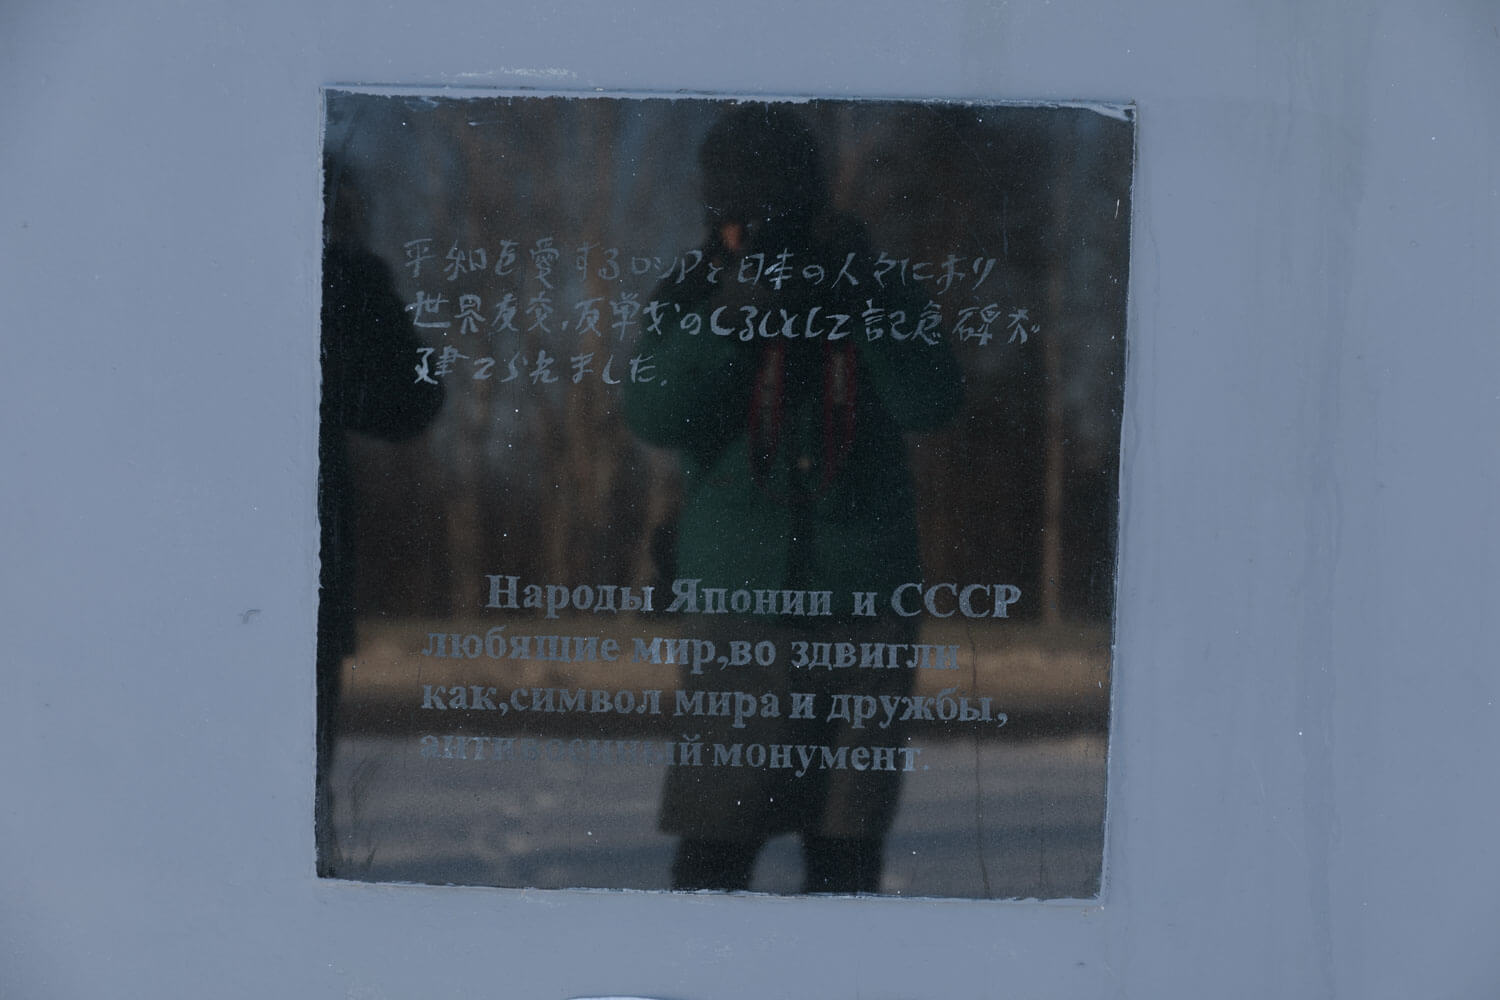 平和を愛するロシアと日本の人々により
世界友交，反戦争のしるしとして記念碑が
建てられました．
Народы Японии и СССР
любящие мир,во здвигли
как,символ мира и дружбы,
антивоенный монумент.